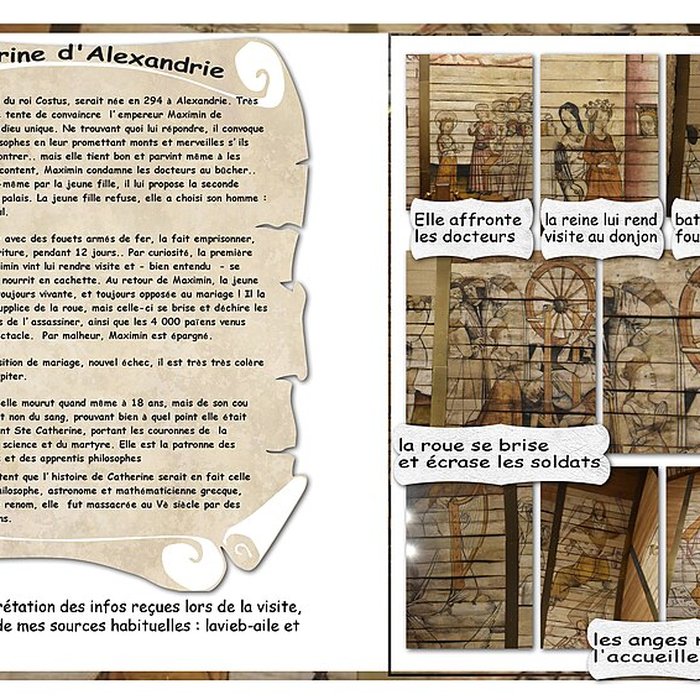 rine d'Alexandrie
du roi Costus, serait née en 294 à Alexandrie. Très
tente de convaincre l'empereur Maximin de
dieu unique. Ne trouvant quoi lui répondre, il convoque
sophes en leur promettant monts et merveilles s'ils
ontrer.. mais elle tient bon et parvint même à les
content, Maximin condamne les docteurs au bûcher..
-même par la jeune fille, il lui propose la seconde
palais. La jeune fille refuse, elle a choisi son homme :
al.
avec des fouets armés de fer, la fait emprisonner,
riture, pendant 12 jours.. Par curiosité, la première
imin vint lui rendre visite et - bien entendu - se
nourrit en cachette. Au retour de Maximin, la jeune
oujours vivante, et toujours opposée au mariage ! Il la
upplice de la roue, mais celle-ci se brise et déchire les
s de l'assassiner, ainsi que les 4 000 païens venus
ctacle. Par malheur, Maximin est épargné.
sition de mariage, nouvel échec, il est très très colère
piter.
elle mourut quand même à 18 ans, mais de son cou
t non du sang, prouvant bien à quel point elle était
nt Ste Catherine, portant les couronnes de la
science et du martyre. Elle est la patronne des
et des apprentis philosophes
tent que l'histoire de Catherine serait en fait celle
ilosophe, astronome et mathématicienne grecque,
renom, elle fut massacrée au Vè siècle par des
ns.
rétation des infos reçues lors de la visite,
de mes sources habituelles : lavieb-aile et
Elle affronte
les docteurs
la reine lui rend
visite au donjon
bat
fou
la roue se brise
et écrase les soldats
les anges
l'accueille